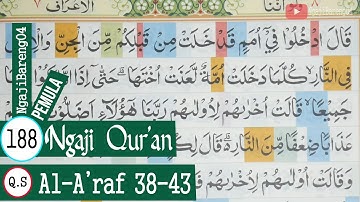 الأعراف
قَالَ ادْخُلُوْا فِيْٓ اُمَمٍ قَدْ خَلَتْ مِنْ قَبْلِكُمْ مِّنَ الْجِنِّ وَالْاِنْسِ
فِى النَّارِ كُلَّمَا دَخَلَتْ اُمَّةٌ لَّعَنَتْ اُخْتَهَا حَتّٰىٓ اِذَا
جَمِيْعًا قَالَتْ اُخْرٰىهُمْ لِاُوْلٰىهُمْ رَبَّنَا هٰٓؤُلَاۤءِ اَضَلُّوْنَا
عَذَابًا ضِعْفًا مِّنَ النَّارِ قَالَ
وَقَالَتْ اُوْلٰىهُمْ لِاُخْرٰىهُمْ
NgajiBareng04
PEMULA
188 Ngaji Qur'an
Q.S Al-A'raf 38-43